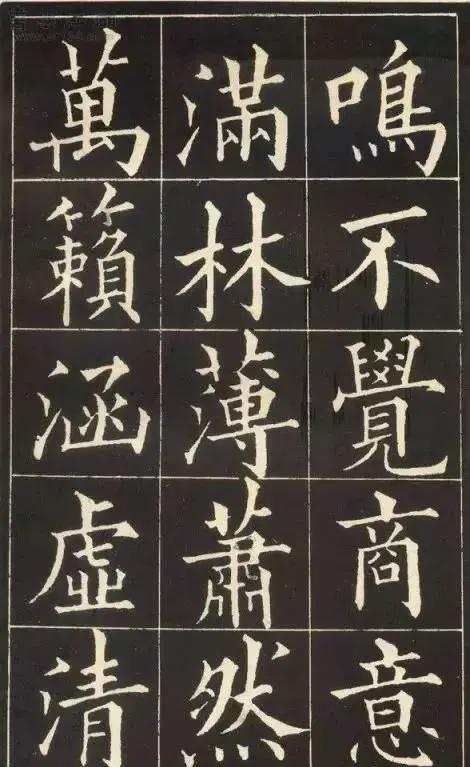 鳴不覺商意
滿林薄蕭然
萬籟涵虛清